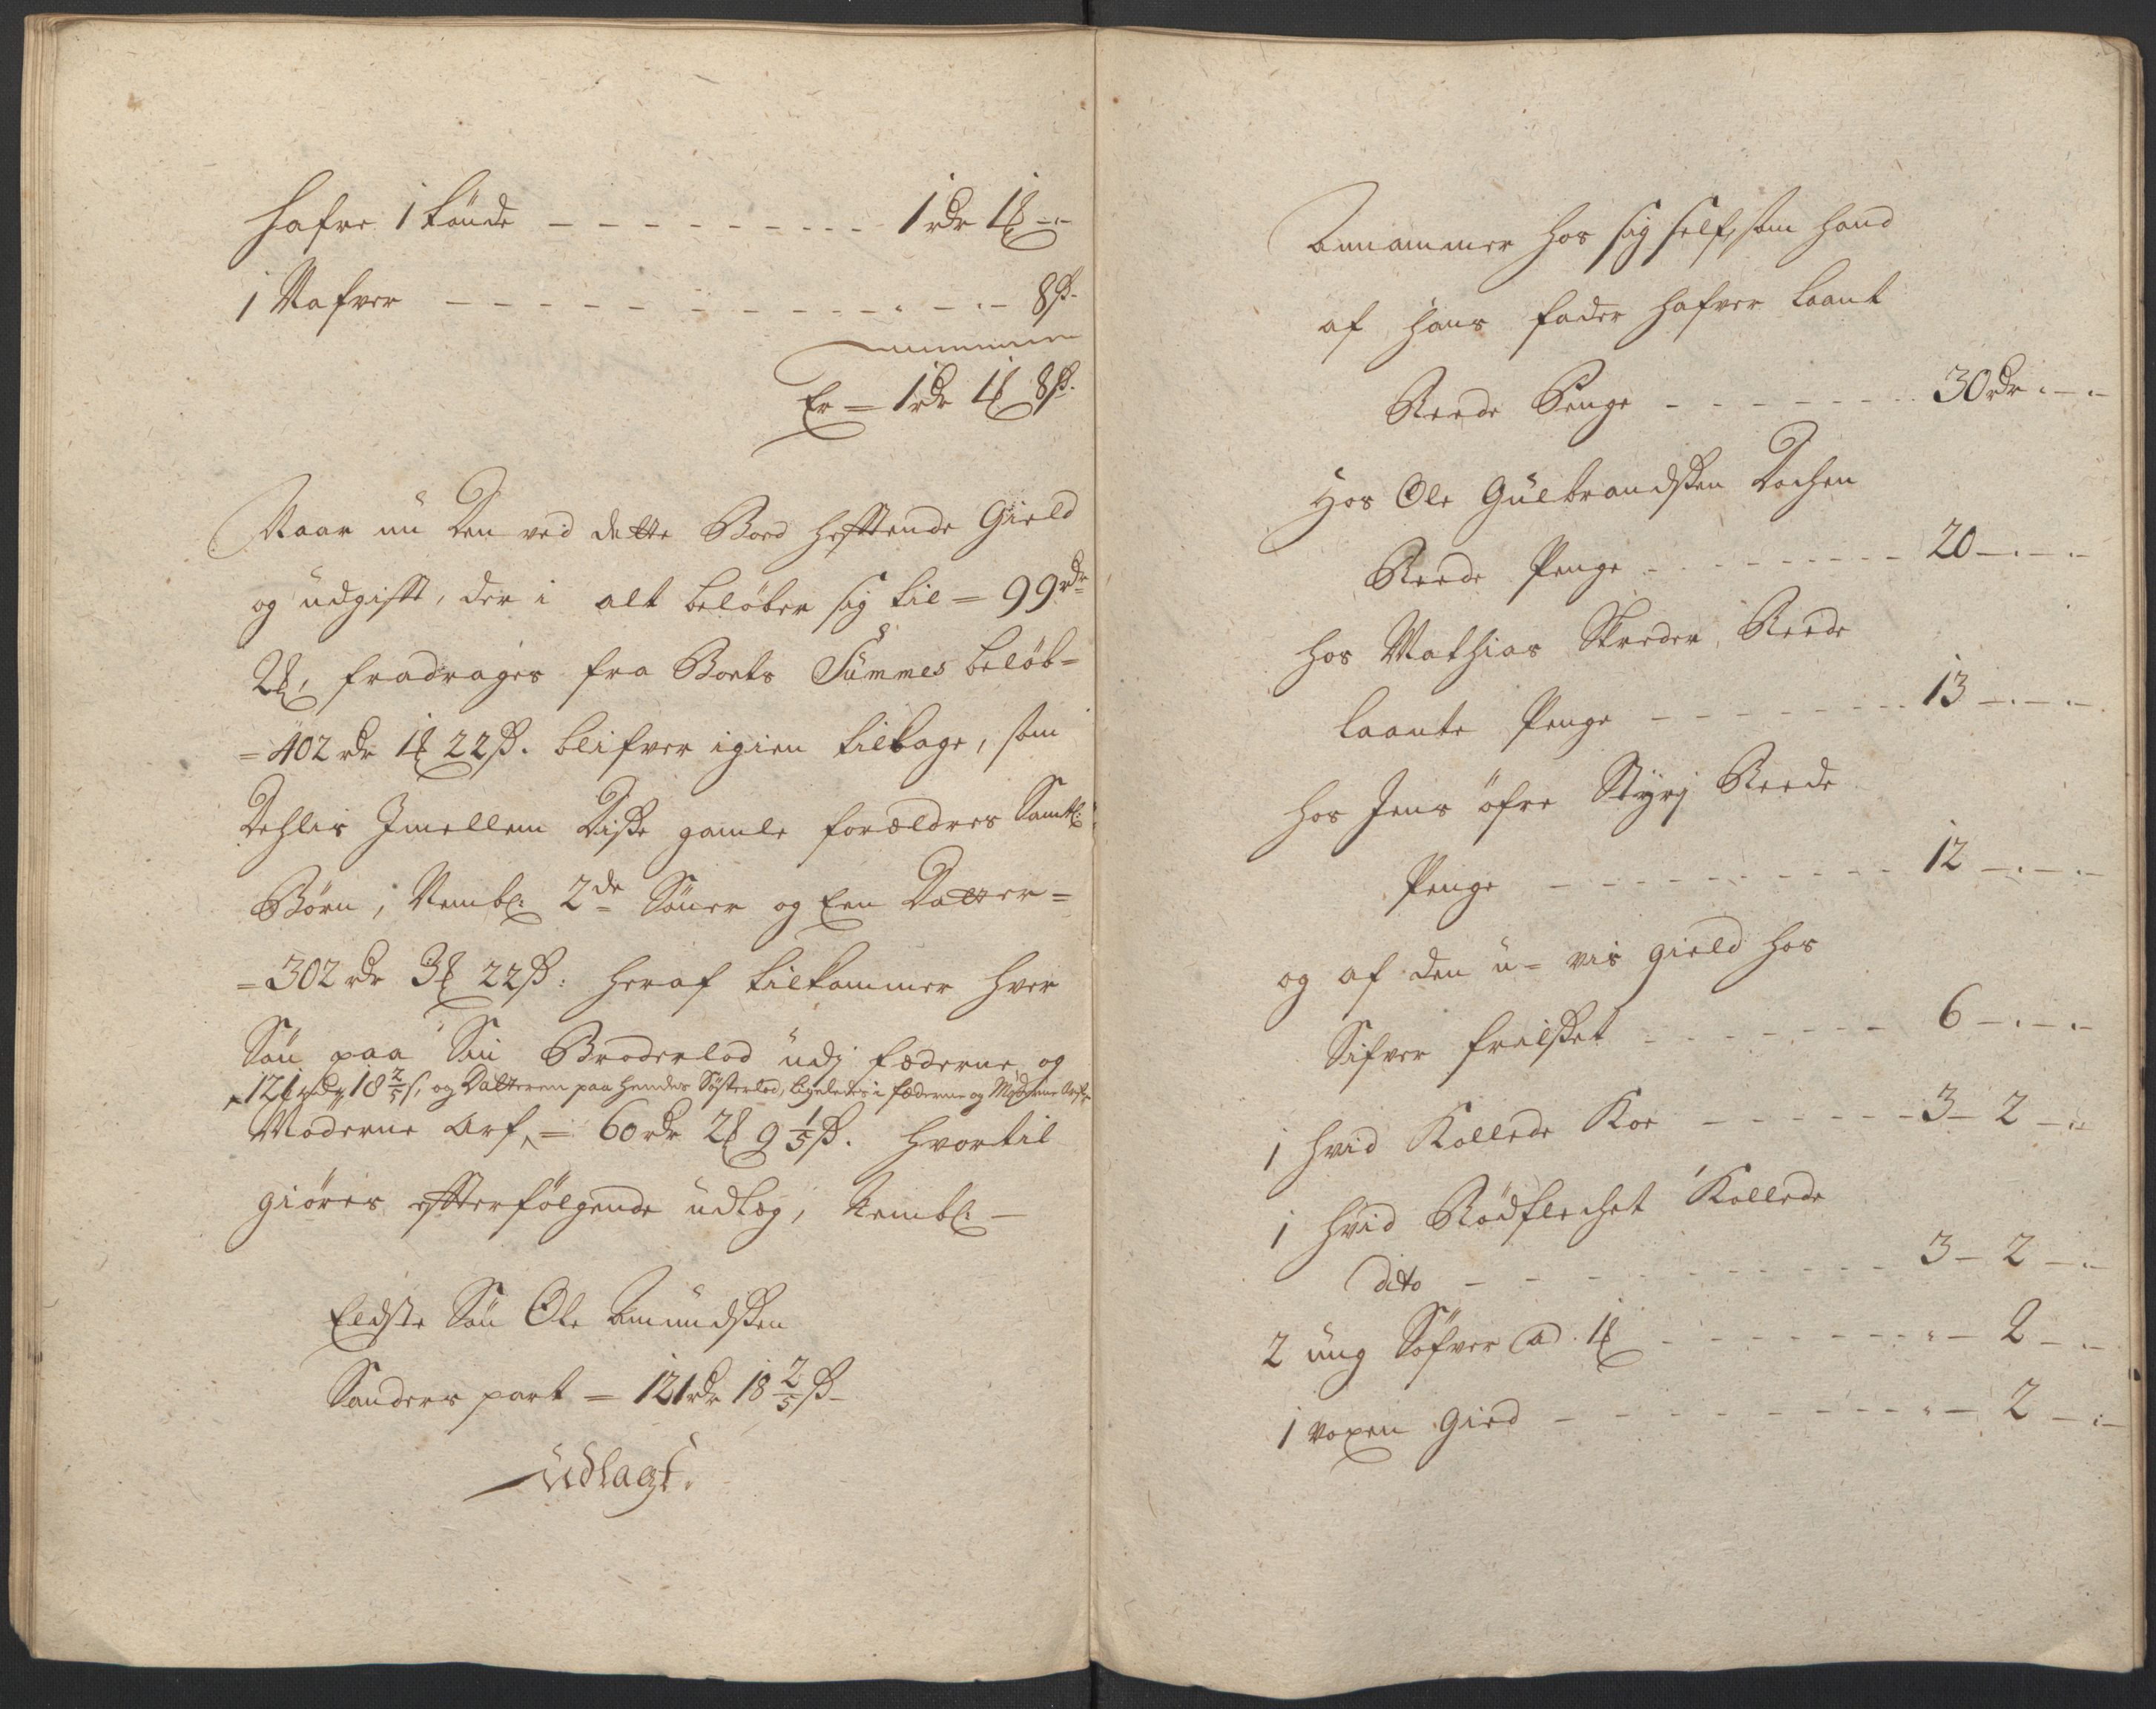 Hafre 1 tønde - - - - - - - - - 1 rdr 1 ℔ -"-
1 Nafver - - - - - - - - - - " - " - 8 ß.
Er = 1 rdr 1 ℔ 8 ß.
Naar nu Den ved dette Boed hefftende Gield
og udgifft, der i alt beløber sig til = 99 rdr
2 ℔, fradrages fra Boets Summes beløb =
= 402 rdr 1 ℔ 22 ß. blifver igien tilbage, som
Dehlis Jmellem Disse gamle forældres Samtl:
Børn, Nembl: 2de Sönner og Een Datter =
= 302 rdr 3 ℔ 22 ß: heraf tilkommer hver
Søn paa Sin Broderlod udj fæderne og
121 rdr 18 2/5 ß, og Datteren paa hendes Søsterlod, ligeledes i fæderne og Møderne Arf
Møderne Arf, = 60 rdr 2 ℔ 9 1/5 ß. hvortil
giøres effterfølgende udlæg, Nembl: -
Eldste Søn Ole Amundsen
Sanders part = 121 rdr 18 2/5 ß -
Udlagt.
Annammer hos sig self, som hand
af hans fader hafver laant
Reede Penge - - - - - - - 30 rdr " - "-
Hos Ole Gulbrandsen Dochen
Reede Penge - - - - - - - - 20 - " - "-
hos Mathias Skreder, Reede
laante Penge - - - - - - - 13 - " - "-
hos Jens øfre Styrj Reede
Penge - - - - - - - - - - 12 - " - "-
og af den u-vis gield hos
Sifver Frilset - - - - - - - 6 - " - "-
1 hvid Kollede Koe - - - - - 3 - 2 - "
1 hvid Rødflechet Kollede
dito - - - - - - - - - - - 3 - 2 - "-
2 ung Søfver ad. 1 ℔ - - - - - - " - 2 - "-
1 voxen Gied - - - - - - - - - " - 2 - "-